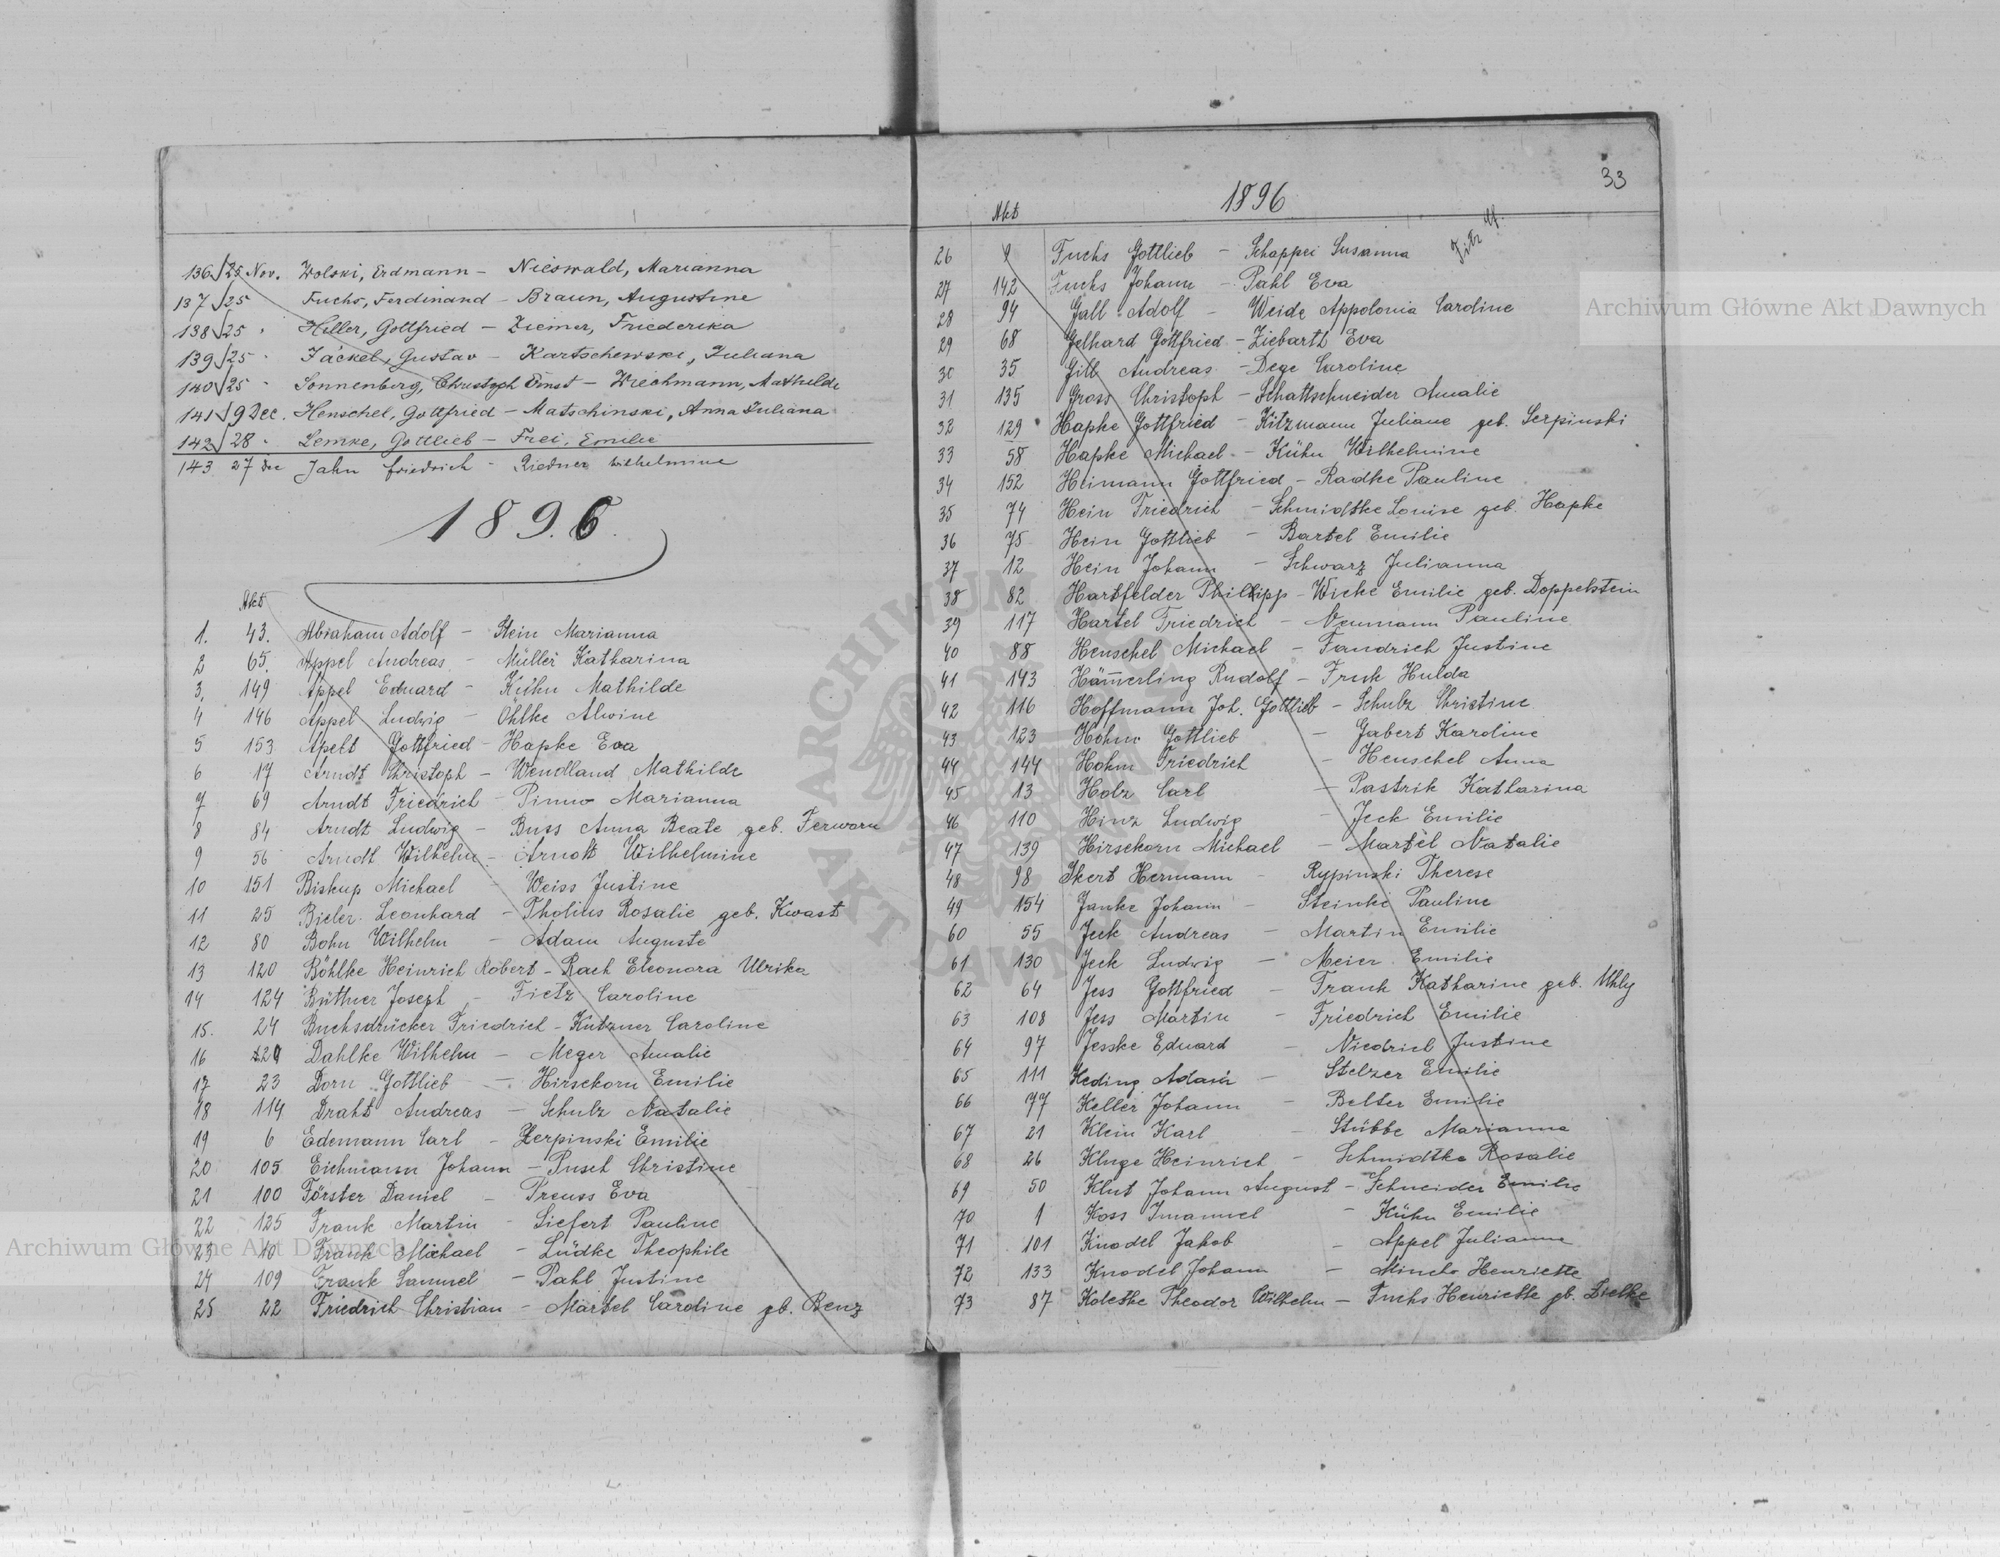 136 25 Nov. Wolski, Erdmann – Nieswald, Marianna
137 25 Fuchs, Ferdinand – Braun, Augustine
138 25 " Heller, Gottfried – Ziemer, Friederika
139 25 " Jäckel, Gustav – Kartschewski, Juliana
140 25 " Sonnenberg, Christoph Ernst – Wiechmann, Mathilde
141 9 Dec. Henschel, Gottfried – Matschinski, Anna Juliana
142 28 " Lemke, Gottlieb – Frei, Emilie
143 27 Dec Jahn Friedrich – Riedner Wilhelmine
1896.
Akt
1. 43. Abraham Adolf – Stein Marianna
2 65. Appel Andreas – Müller Katharina
3. 149 Appel Eduard – Kühn Mathilde
4 146 Appel Ludwig – Öhlke Alwine
5 153 Apelt Gottfried – Hapke Eva
6 17 Arndt Christoph – Wendland Mathilde
7 69 Arndt Friedrich – Pinno Marianna
8 84 Arndt Ludwig – Buss Anna Beate geb. Ferworn
9 56 Arndt Wilhelm – Arndt Wilhelmine
10 151 Biskup Michael – Weiss Justine
11 25 Bieler Leonhard – Tholius Rosalie geb. Kwast
12 80 Bohn Wilhelm – Adam Auguste
13 120 Böhlke Heinrich Robert – Rach Eleonora Ulrika
14 124 Büttner Joseph – Fietz Caroline
15. 24 Buchsdrücker Friedrich – Kutzner Caroline
16 129 Dahlke Wilhelm – Meger Amalie
17 23 Dorn Gottlieb – Hirsekorn Emilie
18 114 Draht Andreas – Schulz Natalie
19 6 Edemann Carl – Zerpinski Emilie
20 105 Eichmann Johann – Pusch Christine
21 100 Förster Daniel – Preuss Eva
22 125 Frank Martin – Siefert Pauline
23 10 Frank Michael – Lüdke Theophile
24 109 Frank Samuel – Pahl Justine
25 22 Friedrich Christian – Märtel Caroline gb. Benz
33
1896
Akt
26 9 Fuchs Gottlieb – Schappei Susanna
27 142 Fuchs Johann – Pahl Eva
28 94 Gall Adolf – Weide Appolonia Caroline
29 68 Gelhard Gottfried – Ziebarth Eva
30 35 Gill Andreas – Dege Caroline
31 135 Gross Christoph – Schattschneider Amalie
32 129 Hapke Gottfried – Kitzmann Juliane geb. Serpinski
33 58 Hapke Michael – Kühn Wilhelmine
34 152 Heimann Gottfried – Radke Pauline
35 74 Hein Friedrich – Schmidtke Louise geb. Hapke
36 75 Hein Gottlieb – Bartel Emilie
37 12 Hein Johann – Schwarz Julianna
38 82 Hartfelder Phillipp – Wicke Emilie geb. Doppelstein
39 117 Hartel Friedrich – Neumann Pauline
40 88 Henschel Michael – Fandrich Justine
41 143 Hämerling Rudolf – Fruk Hulda
42 116 Hoffmann Joh. Gottlieb – Schulz Christine
43 123 Hohm Gottlieb – Gabert Karoline
44 144 Hohm Friedrich – Henschel Anna
45 13 Holz Carl – Pastrik Katharina
46 110 Hinz Ludwig – Jeck Emilie
47 139 Hirsekorn Michael – Martel Natalie
48 98 Ikert Hermann – Rypinski Therese
49 154 Janke Johann – Steinke Pauline
60 55 Jeck Andreas – Martin Emilie
61 130 Jeck Ludwig – Meier Emilie
62 64 Jess Gottfried – Frank Katharine geb. Uhly
63 108 Jess Martin – Friedrich Emilie
64 97 Jesske Eduard – Niedrich Justine
65 111 Keding Adam – Stelzer Emilie
66 77 Keller Johann – Belter Emilie
67 21 Klein Karl – Stübbe Marianna
68 26 Kluge Heinrich – Schmidtke Rosalie
69 50 Klut Johann August – Schneider Emilie
70 1 Koss Imanuel – Kühn Emilie
71 101 Knodel Jakob – Appel Julianna
72 133 Knodel Johann – Minels Henriette
73 87 Koletke Theodor Wilhelm – Fuchs Henriette gb. Dielke
Archiwum Główne Akt Dawnych
Archiwum Główne Akt Dawnych